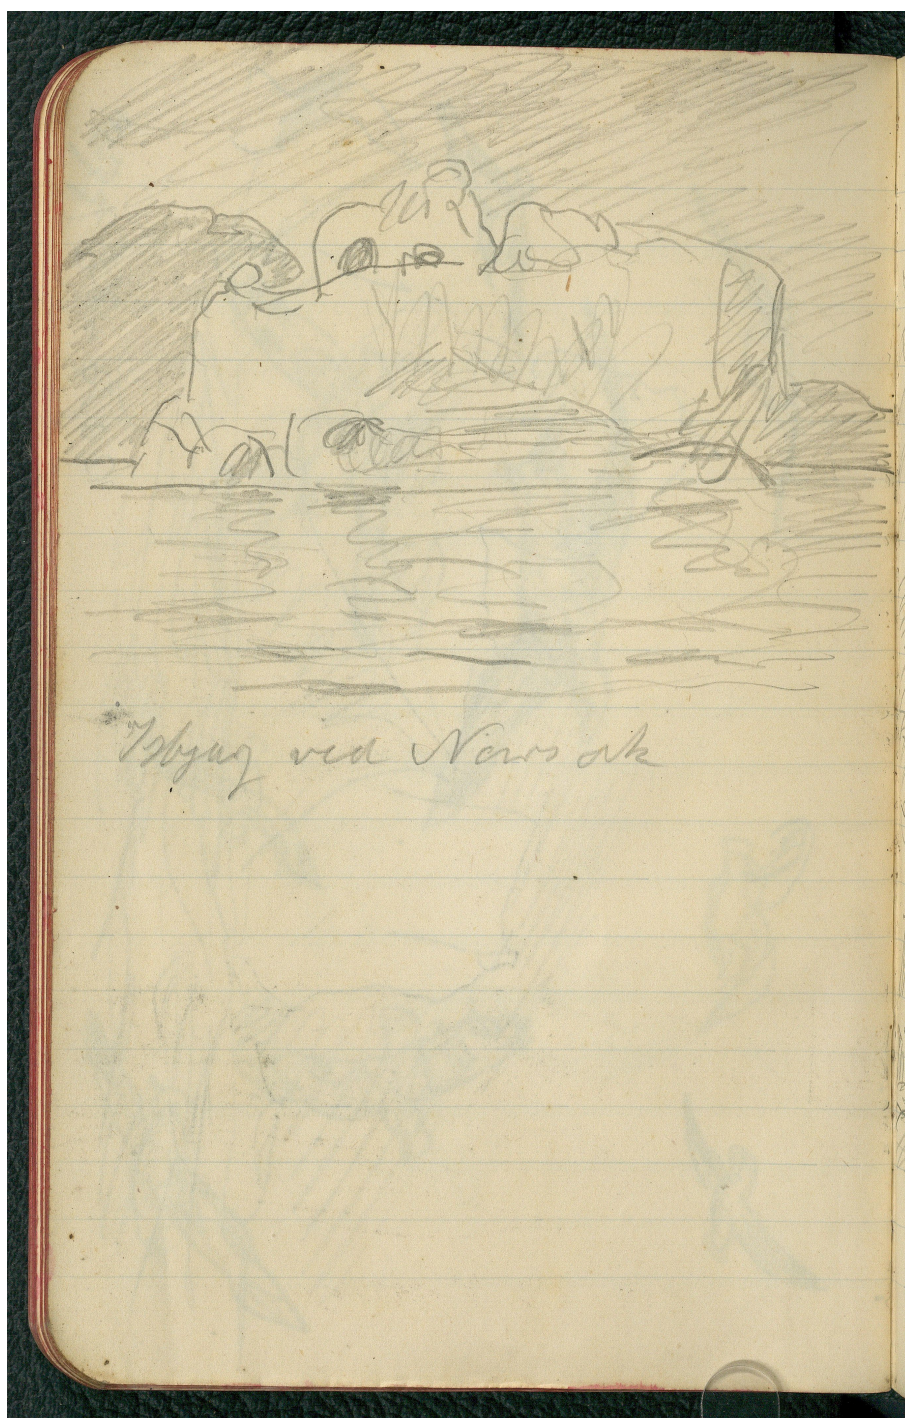 Isbjærg ved Nowsak